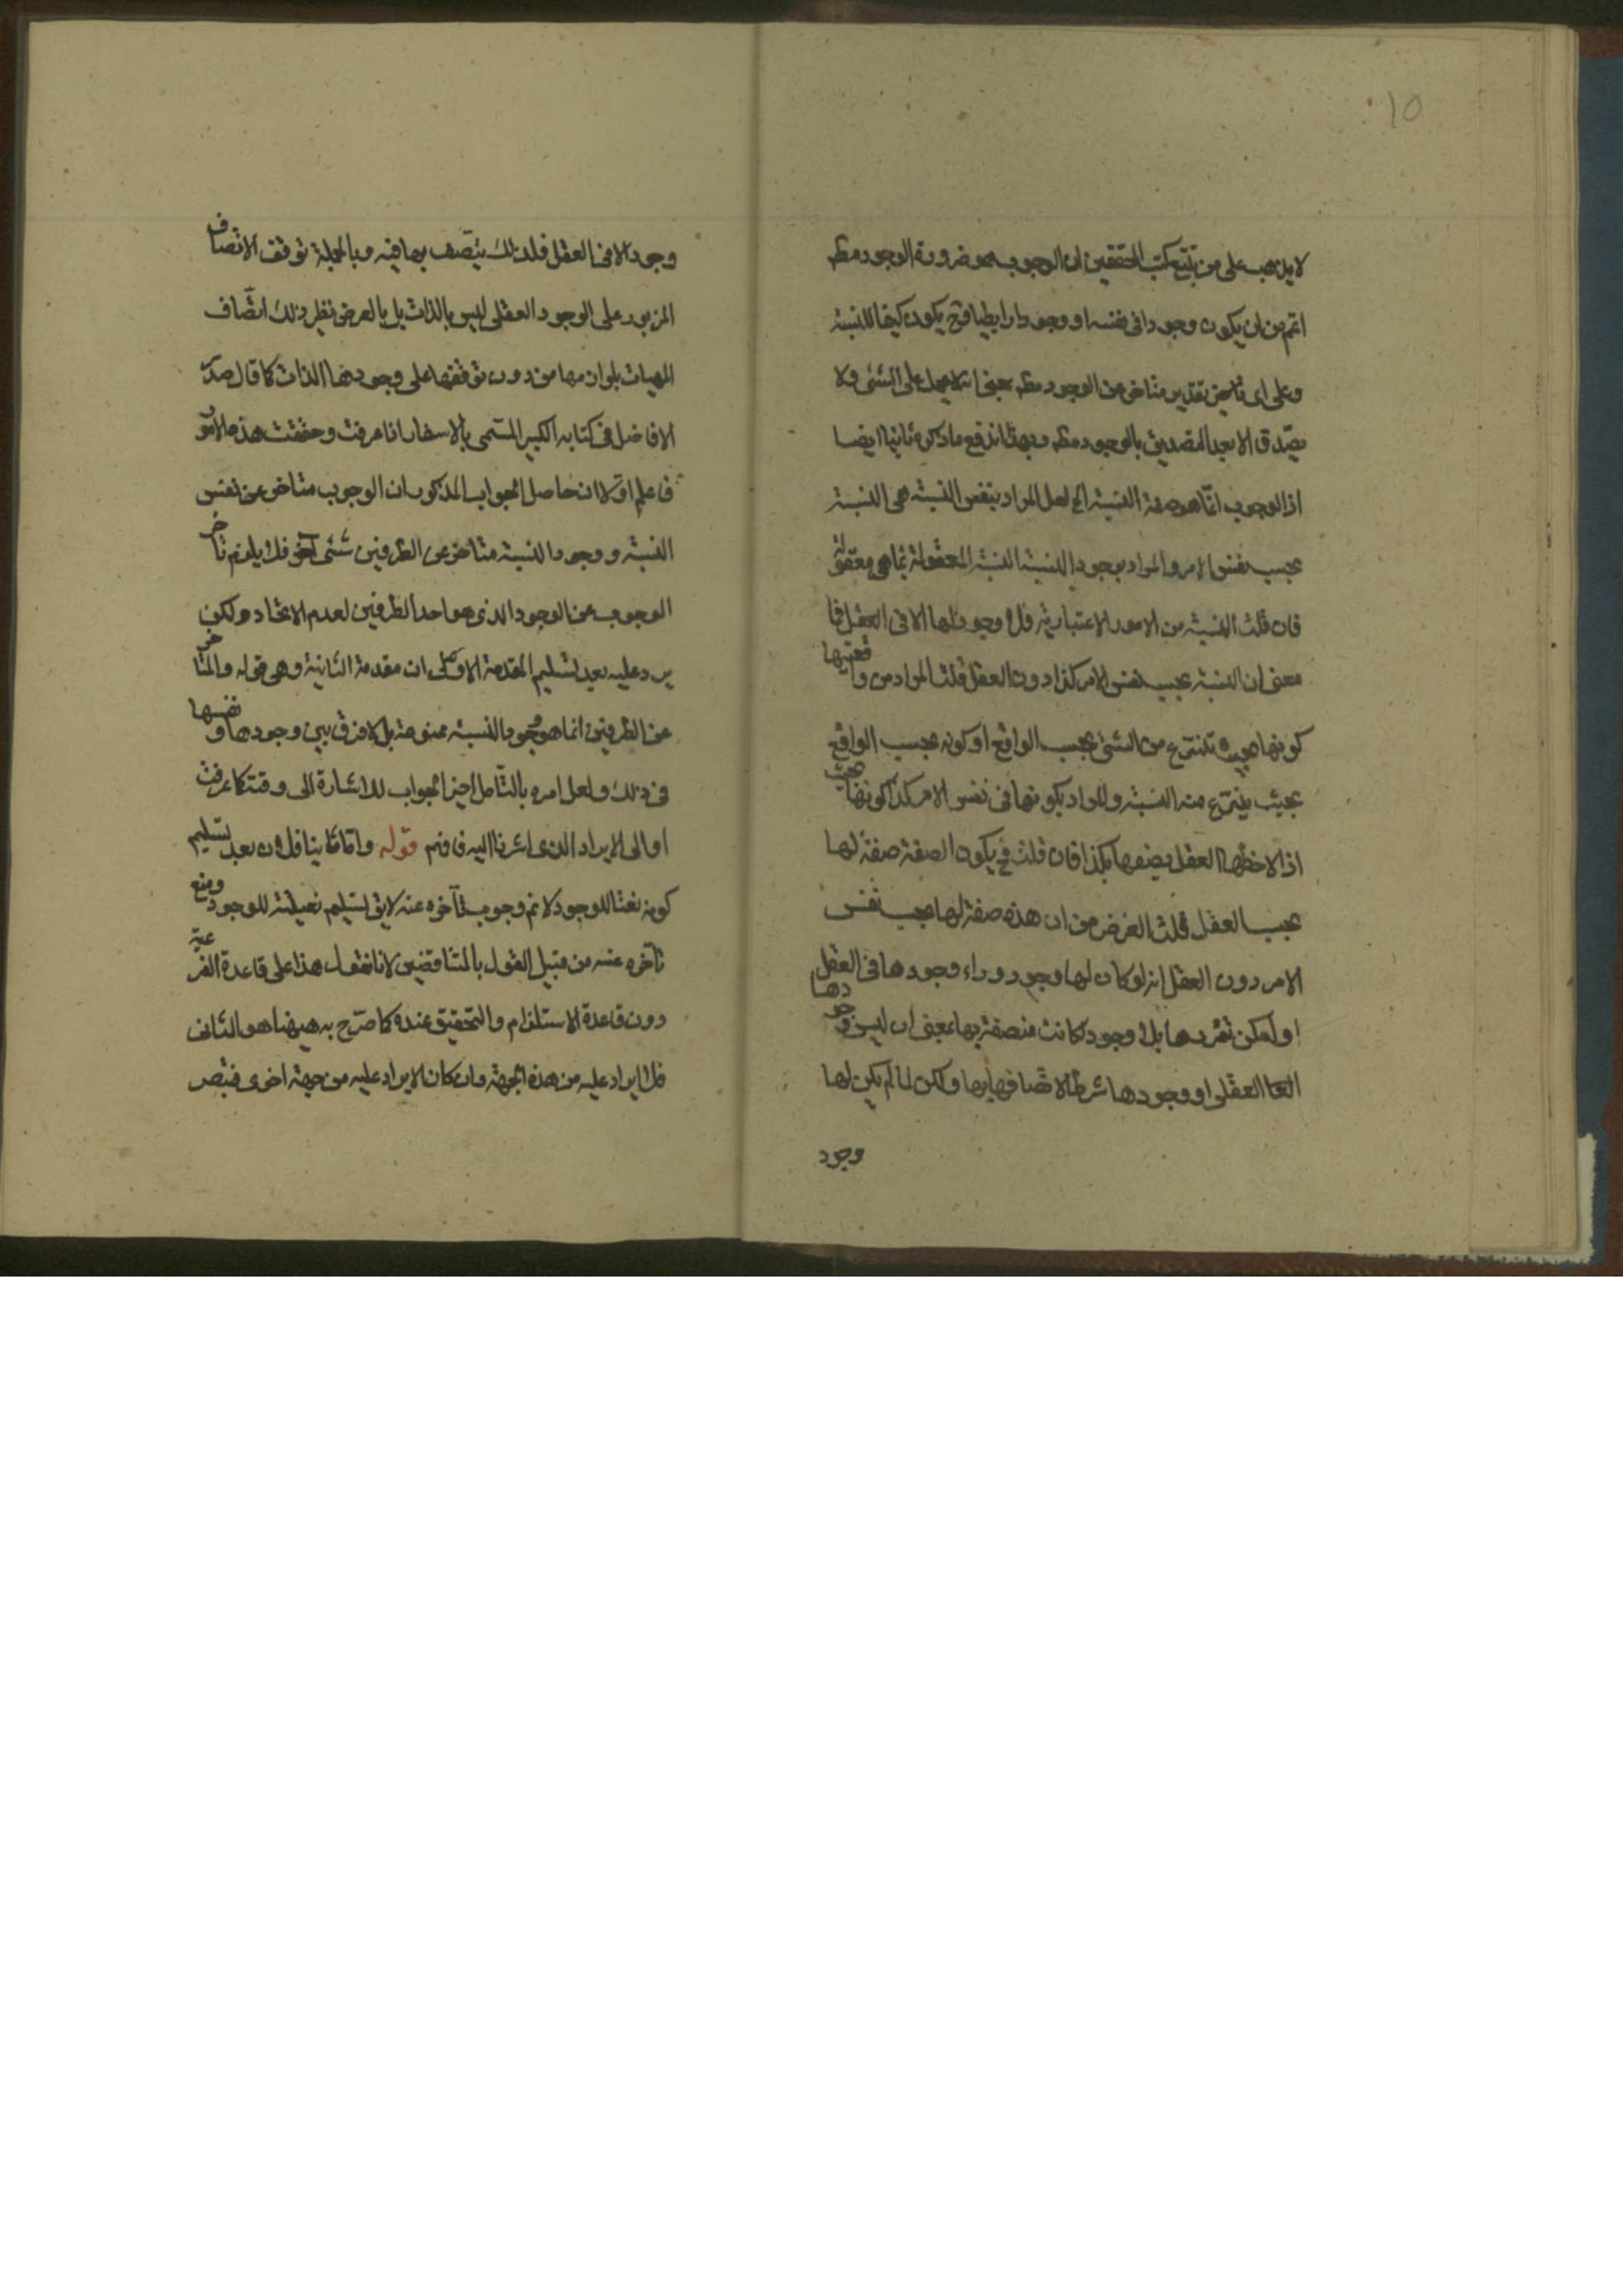 10
لا يذهب على من يتتبع كتب المحققين ان الوجوب هو ضرورة الوجود مط
اعم من ان يكون وجودا فى نفسه او وجودا رابطيا فح يكون كيفا للنسبة
وعلى اى تقدير متاخر عن الوجود مط بمعنى انه لا يحمل على الشئ ولا
يصدق الا بعد التصديق بالوجود مط وبهذا اندفع ما ذكره ثانيا ايضا
اذ الوجوب انما هو صفة النسبة الخ لعل المراد بنفس النسبة هى النسبة
بحسب نفس الامر والمراد بوجود النسبة النسبة المعقولة بما هى معقولة
فان قلت النسبة من الامور الاعتبارية فلا وجود لها الا فى العقل فما
معنى ان النسبة بحسب نفس الامر كذا دون العقل قلت المراد من واقعيتها
كونها بحيث تنتزع من الشئ بحسب الواقع او كونه بحسب الواقع
بحيث ينتزع منه النسبة والمراد بكونها فى نفس الامر كذا كونها بحيث
اذا لاحظها العقل يصفها بكذا فان قلت فح يكون الصفة صفة لها
بحسب العقل قلت الغرض من ان هذه صفة لها بحسب نفس
الامر دون العقل انه لو كان لها وجود وراء وجودها فى العقل
او امكن تقررها بلا وجود كانت متصفة بها بمعنى ان ليس وجودها
العقلى او وجودها شرطا لاتصافها بها ولكن لما لم يكن لها
وجود
وجود الا فى العقل فلذلك يتصف بها فيه وبالجملة توقف الاتصاف
المزبور على الوجود العقلى ليس بالذات بل بالعرض نظير ذلك اتصاف
المهيات بلوازمها من دون توقفها على وجودها الذات كما قال صدر
الافاضل فى كتابه الكبير المسمى بالاسفار اذا عرفت وحققت هذه الامور
فاعلم اولا ان حاصل الجواب المذكور ان الوجوب متاخر عن نفس
النسبة ووجود النسبة متاخر عن الطرفين شئ آخر فلا يلزم تاخر
الوجوب عن الوجود الذى هو احد الطرفين لعدم الاتحاد ولكن
يرد عليه بعد تسليم المقدمة الاولى ان مقدمة الثانية وهى قوله والمتاخر
عن الطرفين انما هو وجود النسبة ممنوعة بل لا فرق بين وجودها ونفسها
فى ذلك ولعل امره بالتأمل اخيرا لجواب للاشارة الى وقته كما عرفت
او الى الايراد الذى اشرنا اليه فافهم قوله واما ثانيا فلان بعد تسليم
كونه نعتا للوجود لا نم وجوب تأخره عنه لايق تسليم نعتيته للوجود ومنع
تأخره عنه من قبيل القول بالمتناقضين لانا نقول هذا على قاعدة الفرعية
دون قاعدة الاستلزام والتحقيق عنده كما صرح به هيهنا هو الثانى
فلا ايراد عليه من هذه الجهة وان كان الايراد عليه من جهة اخرى فتبصر